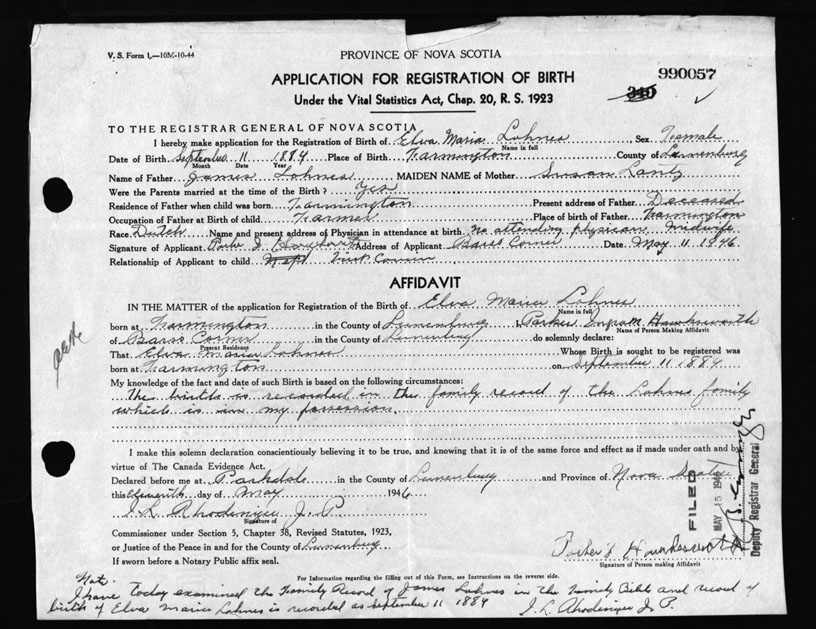 V. S. Form 1.—10M-10-44
PROVINCE OF NOVA SCOTIA
APPLICATION FOR REGISTRATION OF BIRTH
990057
Under the Vital Statistics Act, Chap. 20, R. S. 1923
340
TO THE REGISTRAR GENERAL OF NOVA SCOTIA
I hereby make application for the Registration of Birth of Elva Maria Lohnes Sex Female
Name in full
Date of Birth September 11 1884 Place of Birth Farmington County of Lunenburg
Month Date Year
Name of Father James Lohnes MAIDEN NAME of Mother Susan Lantz
Were the Parents married at the time of the Birth? Yes
Residence of Father when child was born Farmington Present address of Father Deceased
Occupation of Father at Birth of child Farmer Place of birth of Father Farmington
Race Dutch Name and present address of Physician in attendance at birth no attending physician, Midwife
Signature of Applicant Address of Applicant Barss Corner Date May 11 1946
Relationship of Applicant to child first Cousin
AFFIDAVIT
IN THE MATTER of the application for Registration of the Birth of Elva Maria Lohnes
Name in full
born at Farmington in the County of Lunenburg I, Parker Ingram Hawkesworth
Name of Person Making Affidavit
of Barss Corner in the County of Lunenburg do solemnly declare:
Present Residence
That Elva Maria Lohnes Whose Birth is sought to be registered was
born at Farmington on September 11 1884
My knowledge of the fact and date of such Birth is based on the following circumstances:
The birth is recorded in the family record of the Lohnes family
which is in my possession.
I make this solemn declaration conscientiously believing it to be true, and knowing that it is of the same force and effect as if made under oath and by
virtue of The Canada Evidence Act.
Declared before me at Parkdale in the County of Lunenburg and Province of Nova Scotia
this Eleventh day of May 1946
I. L. Rhodenizer J. P.
Signature of
Commissioner under Section 5, Chapter 38, Revised Statutes, 1923,
or Justice of the Peace in and for the County of Lunenburg
If sworn before a Notary Public affix seal.
Signature of Person making Affidavit
FILED
MAY 15 1946
Deputy Registrar General
For Information regarding the filling out of this Form, see Instructions on the reverse side.
Note.
I have today examined the Family Record of James Lohnes in the Family Bible and record of
birth of Elva Maria Lohnes is recorded as September 11 1884 I. L. Rhodenizer J. P.